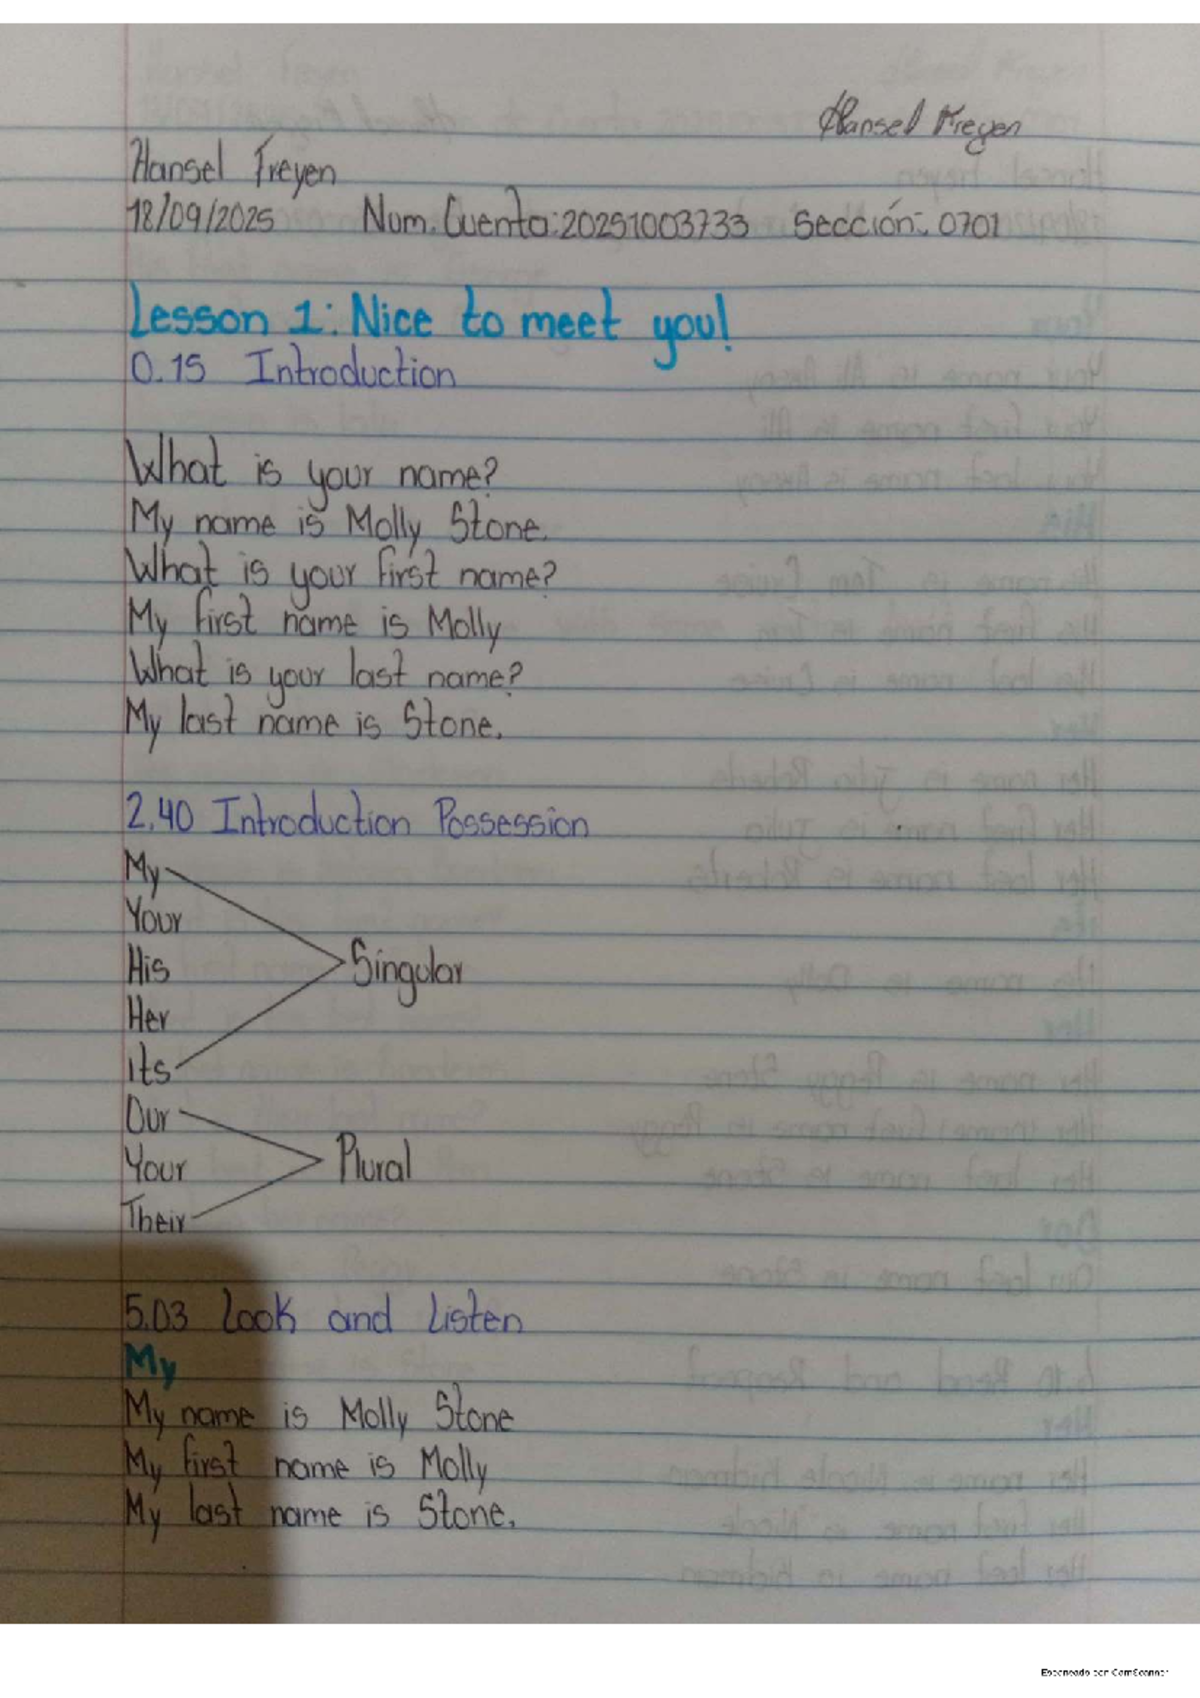 Hansel Freyen
Hansel Freyen
18/09/2025 Num. Cuenta: 20251003733 Sección: 0701
Lesson 1: Nice to meet you!
0.15 Introduction
What is your name?
My name is Molly Stone.
What is your first name?
My first name is Molly
What is your last name?
My last name is Stone.
2.40 Introduction Possession
My
Your
His Singular
Her
its
Our
Your Plural
Their
5.03 Look and Listen
My
My name is Molly Stone
My first name is Molly
My last name is Stone.
Escaneado con CamScanner